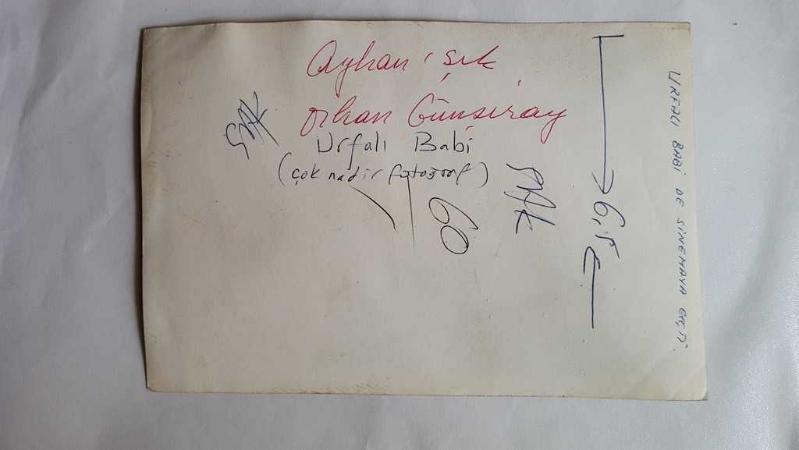 Ayhan Işık
Orhan Günşiray
Urfalı Babi
(çok nadir fotoğraf)
60
6,5
URFALI BABİ DE SİNEMAYA GEÇTİ